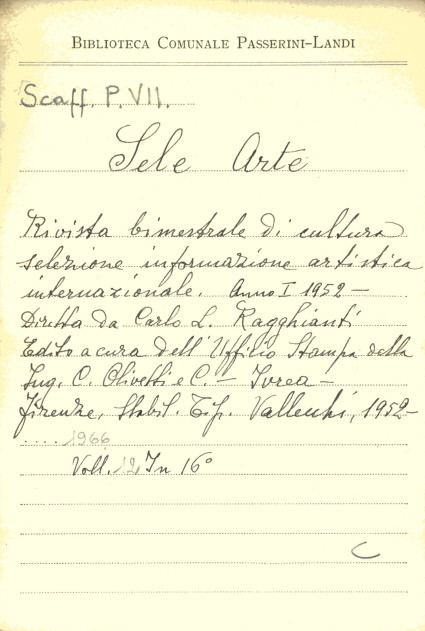 BIBLIOTECA COMUNALE PASSERINI-LANDI
Scaff. P. VII.
Sele Arte
Rivista bimestrale di cultura
selezione informazione artistica
internazionale. Anno I 1952 -
Diretta da Carlo L. Ragghianti
Edito a cura dell'Ufficio Stampa della
Ing. C. Olivetti e C. - Ivrea -
Firenze, Stabil. Tip. Vallecchi, 1952-
.... 1966
Voll. 12, In 16°
C